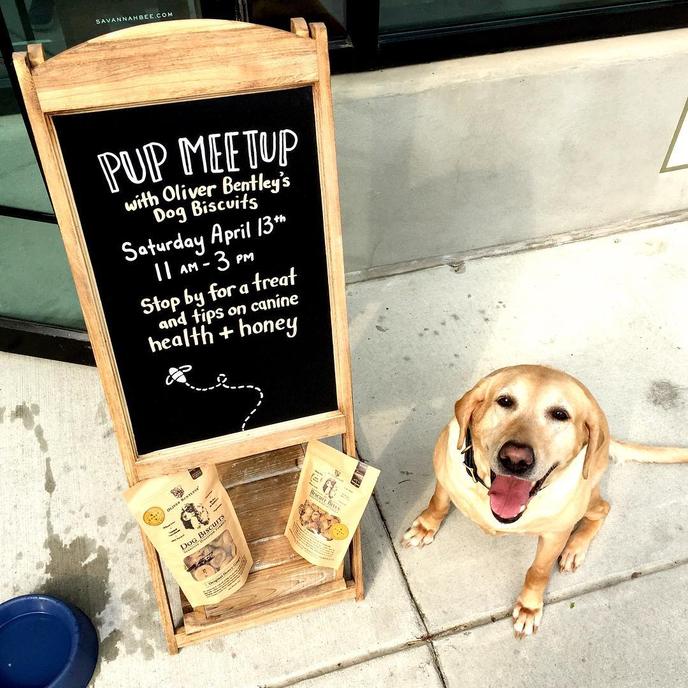 SAVANNAHBEE.COM
PUP MEETUP
with Oliver Bentley's
Dog Biscuits
Saturday April 13th
11 AM - 3 PM
Stop by for a treat
and tips on canine
health + honey
OLIVER BENTLEYS
DOG BISCUITS
BISCUIT BITES